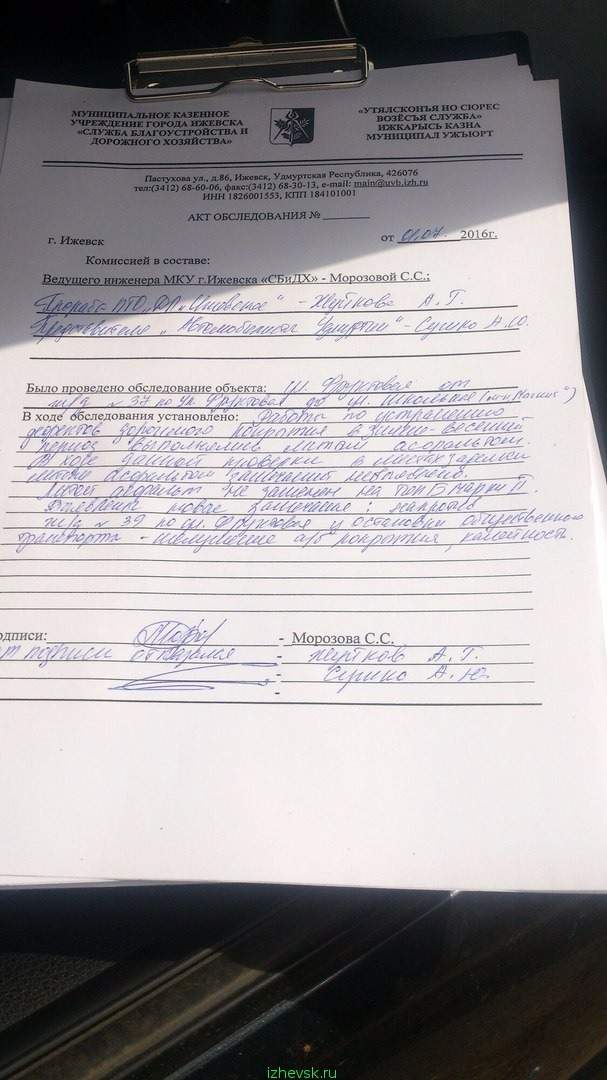 МУНИЦИПАЛЬНОЕ КАЗЕННОЕ
УЧРЕЖДЕНИЕ ГОРОДА ИЖЕВСКА
«СЛУЖБА БЛАГОУСТРОЙСТВА И
ДОРОЖНОГО ХОЗЯЙСТВА»
«УТЯЛСКОНЪЯ НО СЮРЕС
ВОЗЁСЪЯ СЛУЖБА»
ИЖКАРЫСЬ КАЗНА
МУНИЦИПАЛ УЖЪЮРТ
Пастухова ул., д.86, Ижевск, Удмуртская Республика, 426076
тел:(3412) 68-60-06, факс:(3412) 68-30-13, e-mail: main@uvb.izh.ru
ИНН 1826001553, КПП 184101001
АКТ ОБСЛЕДОВАНИЯ №
г. Ижевск от 01.07. 2016г.
Комиссией в составе:
Ведущего инженера МКУ г.Ижевска «СБиДХ» - Морозовой С.С.;
Прораба А. Г.
Представителя „Автомобилист Удмуртии“ - Сушко А.Ю.
Было проведено обследование объекта: ул. Фруктовая от
ж/д № 37 по ул. Фруктовая до ул. Школьная
В ходе обследования установлено: Работы по устранению
дефектов дорожного покрытия в зимне-весенний
период выполнялись литым асфальтом.
В ходе данной проверки в местах заделки
литым асфальтом замечаний не выявлено.
Литой асфальт не заменен на тип Б марки II.
Выявлено новое замечание: напротив
ж/д № 39 по ул. Фруктовая у остановки общественного
транспорта - шелушение а/б покрытия, колейность.
одписи: - Морозова С.С.
от подписи отказался - А. Г.
- Сушко А. Ю.
-
izhevsk.ru